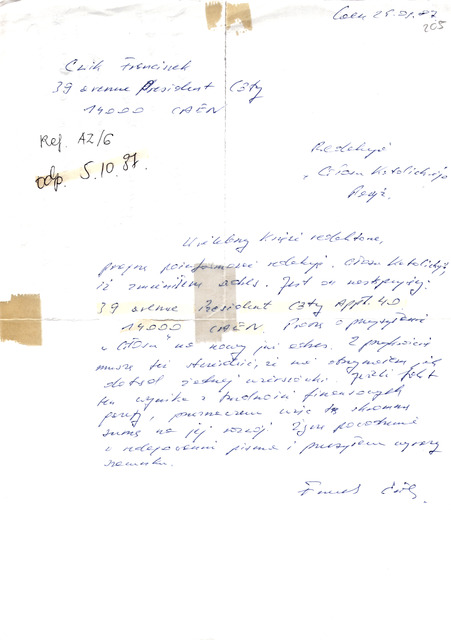 Caen 25.01.87
205
Ćwik Franciszek
39 avenue President Coty
14000 CAEN
Ref. AZ/6
odp. 5.10.87.
Redakcja
"Głosu Katolickiego"
Paryż.
Wielebny Księże redaktorze,
pragnę poinformować redakcję Głosu Katolickiego,
iż zmieniłem adres. Jest on następujący:
39 avenue President Coty Appt. 40
14000 CAEN. Proszę o przysyłanie
"Głosu" na nowy już adres. Z przykrością
muszę też stwierdzić, iż nie otrzymałem jak
dotąd żadnej wzmianki. Jeśli fakt
ten wynika z trudności finansowych
parafii, przeznaczam więc tę skromną
sumę na jej rozwój. Życzę powodzenia
w redagowaniu pisma i przesyłam wyrazy
szacunku.